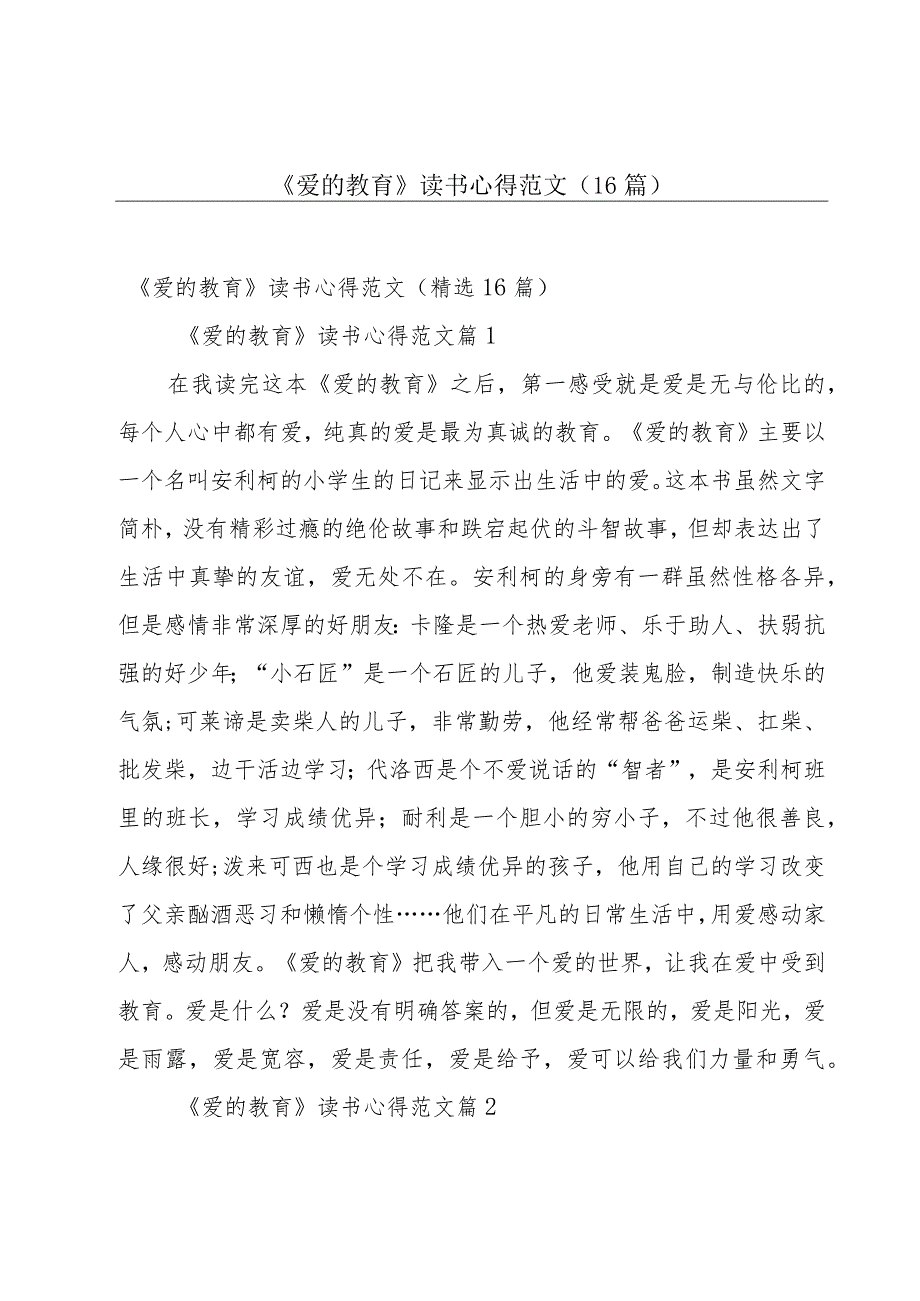 《爱的教育》读书心得范文（16篇）
《爱的教育》读书心得范文（精选16篇）
《爱的教育》读书心得范文篇1
在我读完这本《爱的教育》之后，第一感受就是爱是无与伦比的，
每个人心中都有爱，纯真的爱是最为真诚的教育。《爱的教育》主要以
一个名叫安利柯的小学生的日记来显示出生活中的爱。这本书虽然文字
简朴，没有精彩过瘾的绝伦故事和跌宕起伏的斗智故事，但却表达出了
生活中真挚的友谊，爱无处不在。安利柯的身旁有一群虽然性格各异，
但是感情非常深厚的好朋友：卡隆是一个热爱老师、乐于助人、扶弱抗
强的好少年；“小石匠”是一个石匠的儿子，他爱装鬼脸，制造快乐的
气氛;可莱谛是卖柴人的儿子，非常勤劳，他经常帮爸爸运柴、扛柴、
批发柴，边干活边学习；代洛西是个不爱说话的“智者”，是安利柯班
里的班长，学习成绩优异；耐利是一个胆小的穷小子，不过他很善良，
人缘很好;泼来可西也是个学习成绩优异的孩子，他用自己的学习改变
了父亲酗酒恶习和懒惰个性……他们在平凡的日常生活中，用爱感动家
人，感动朋友。《爱的教育》把我带入一个爱的世界，让我在爱中受到
教育。爱是什么？爱是没有明确答案的，但爱是无限的，爱是阳光，爱
是雨露，爱是宽容，爱是责任，爱是给予，爱可以给我们力量和勇气。
《爱的教育》读书心得范文篇2